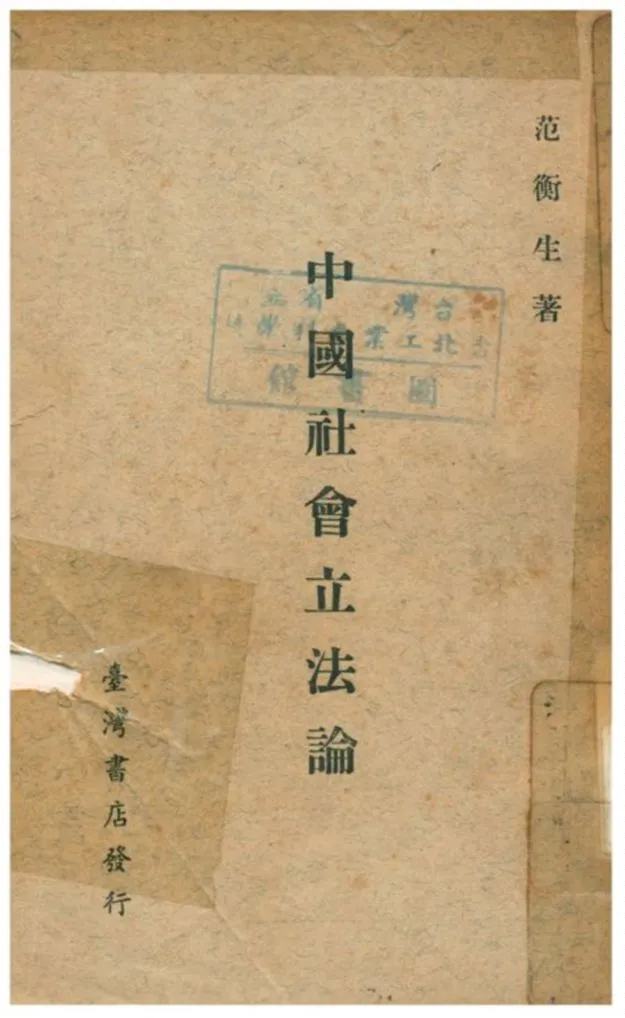 范衡生著
中國社會立法論
台灣省立
台北工業專科學校
圖書館
臺灣書店發行